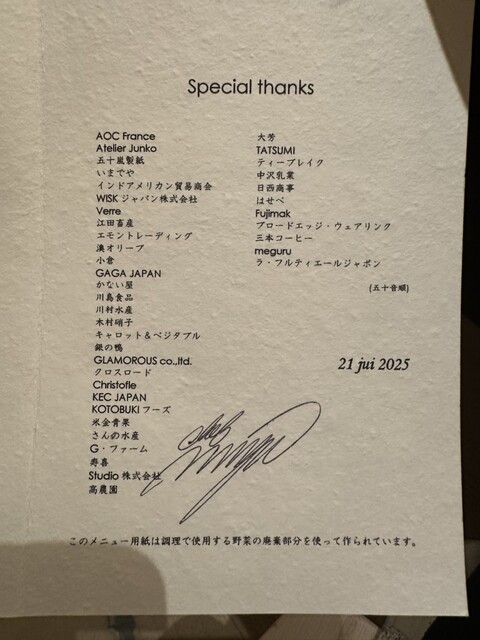 Special thanks
AOC France
Atelier Junko
五十嵐製紙
いまでや
インドアメリカン貿易商会
WISK ジャパン株式会社
Verre
江田畜産
エモントレーディング
澳オリーブ
小倉
GAGA JAPAN
かない屋
川島食品
川村水産
木村硝子
キャロット＆ベジタブル
銀の鴨
GLAMOROUS co.,ltd.
クロスロード
Christofle
KEC JAPAN
KOTOBUKI フーズ
米金青果
さんの水産
G・ファーム
寿喜
Studio 株式会社
高農園
大芳
TATSUMI
ティーブレイク
中沢乳業
日西商事
はせべ
Fujimak
ブロードエッジ・ウェアリンク
三本コーヒー
meguru
ラ・フルティエールジャポン
(五十音順)
21 jui 2025
このメニュー用紙は調理で使用する野菜の廃棄部分を使って作られています。